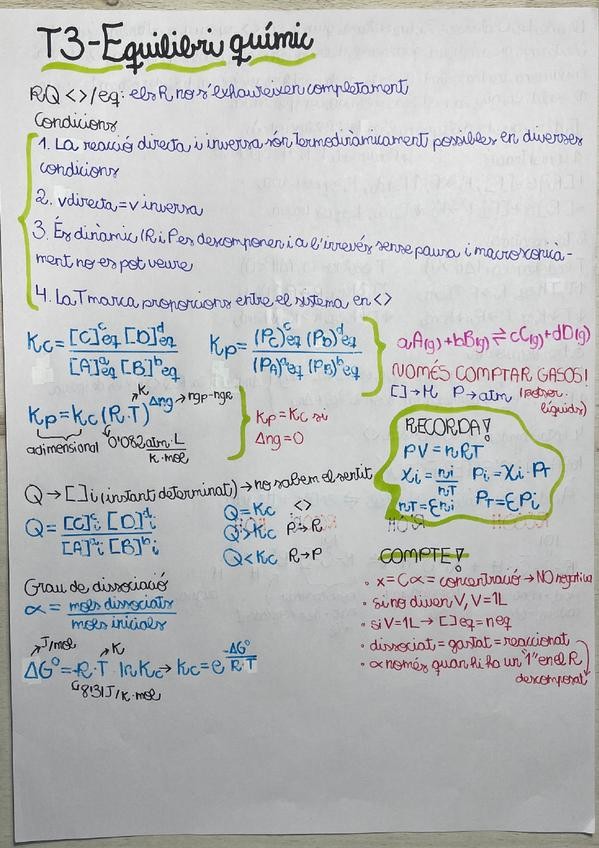 T3-Equilibri químic
RQ <>/eq: els R no s'exhaureixen completament
Condicions
1. La reacció directa i inversa són termodinàmicament possibles en diverses
condicions
2. vdirecta = v inversa
3. És dinàmic (R i P es descomponen i a l'inrevés sense pausa i macroscòpica-
ment no es pot veure
4. La T marca proporcions entre el sistema en <>
Kc = [C]^c eq [D]^d eq / [A]^a eq [B]^b eq
Kp = (Pc)^c eq (PD)^d eq / (PA)^a eq (PB)^b eq
aA(g)+bB(g) ⇌ cC(g)+dD(g)
NOMÉS COMPTAR GASOS!
[]→M P→atm
líquids)
Kp = Kc (R·T)^Δng → ngp-ngr
K
adimensional 0'082 atm·L / K·mol
Kp = Kc si
Δng = 0
RECORDA!
PV = nRT
Xi = ni / nT Pi = Xi · PT
nT = Σni PT = ΣPi
Q → []i (instant determinat) → no sabem el sentit
Q = [C]^c i [D]^d i / [A]^a i [B]^b i
Q = Kc <>
Q > Kc P→R
Q < Kc R→P
COMPTE!
· x = C∝ = concentració → NO negativa
· si no diuen V, V=1L
· si V=1L → []eq = neq
· dissociat = gastat = reaccionat
· ∝ només quan hi ha un "1" en el R
descomposat
Grau de dissociació
∝ = mols dissociats / mols inicials
J/mol K
ΔG° = -R·T lnKc → Kc = e^(-ΔG° / R·T)
8'31 J/K·mol